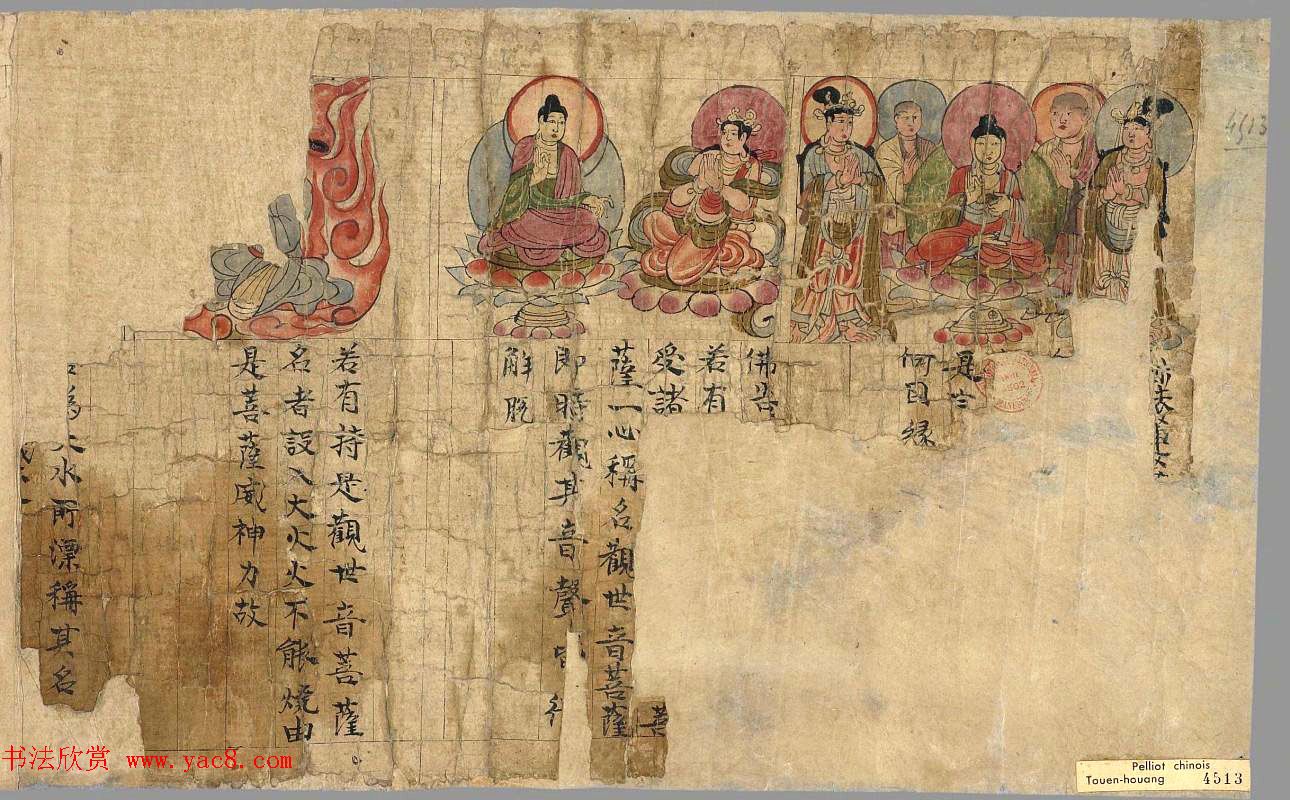 4513
是
何因緣
佛告
若有
受諸
菩
薩一心稱名觀世音菩薩
即時觀其音聲皆
解脫
若有持是觀世音菩薩
名者設入大火火不能燒由
是菩薩威神力故
大水所漂稱其名
书法欣赏 www.yac8.com
Pelliot chinois
Touen-houang 4513